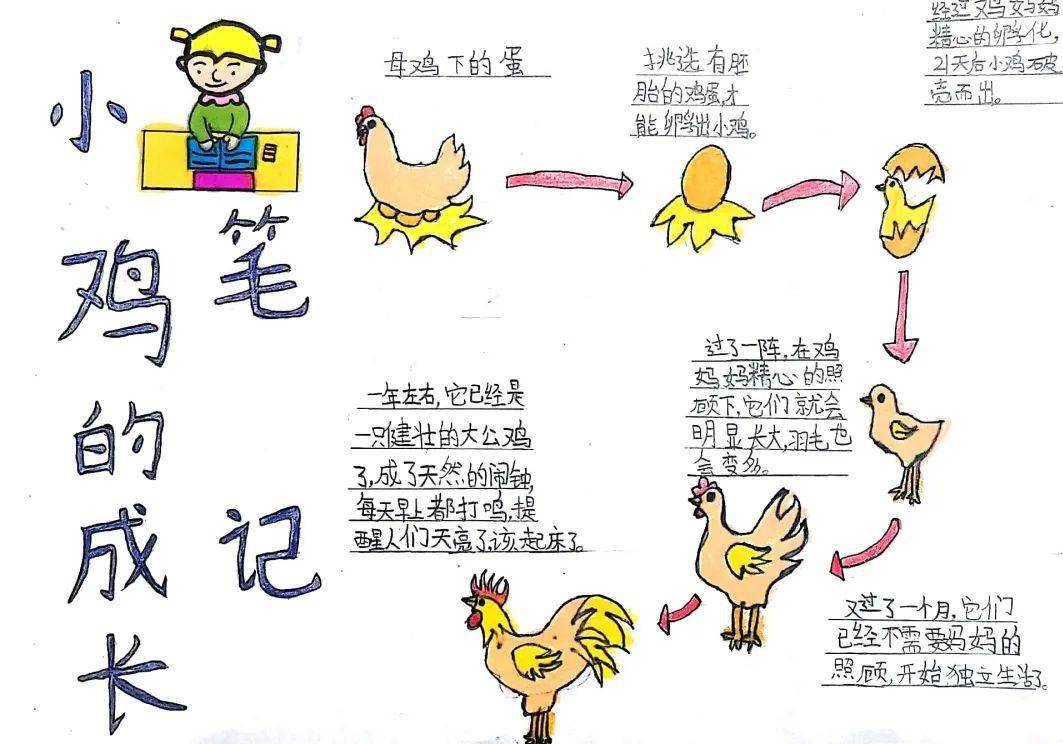 小鸡的成长
笔记
母鸡下的蛋
挑选有胚
胎的鸡蛋,才
能孵出小鸡。
经过鸡妈妈
精心的孵化,
21天后小鸡破
壳而出。
过了一阵,在鸡
妈妈精心的照
顾下,它们就会
明显长大,羽毛也
会变多。
又过了一个月,它们
已经不需要妈妈的
照顾,开始独立生活了。
一年左右,它已经是
一只健壮的大公鸡
了,成了天然的闹钟,
每天早上都打鸣,提
醒人们天亮了,该起床了。